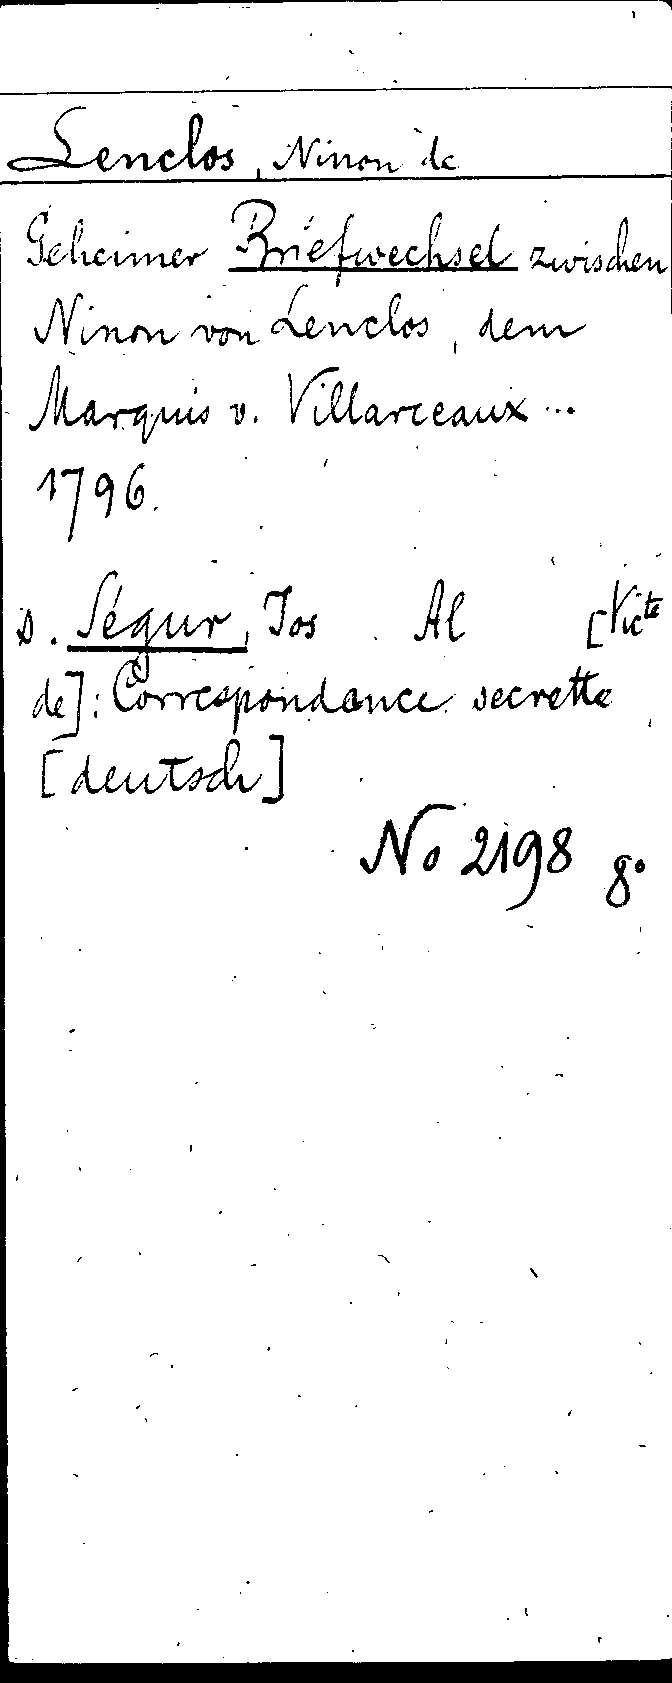 Lenclos, Ninon de
Geheimer Briefwechsel zwischen
Ninon von Lenclos, dem
Marquis v. Villarceaux ...
1796.
s. Ségur, Jos Al [Victe
de]: Correspondance secrette
[deutsch]
No 2198 8°